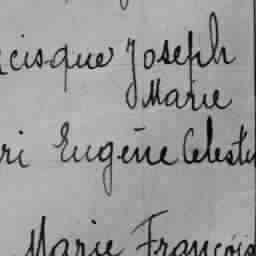 cisque Joseph
Marie
ri Eugène Celesti
Marie François